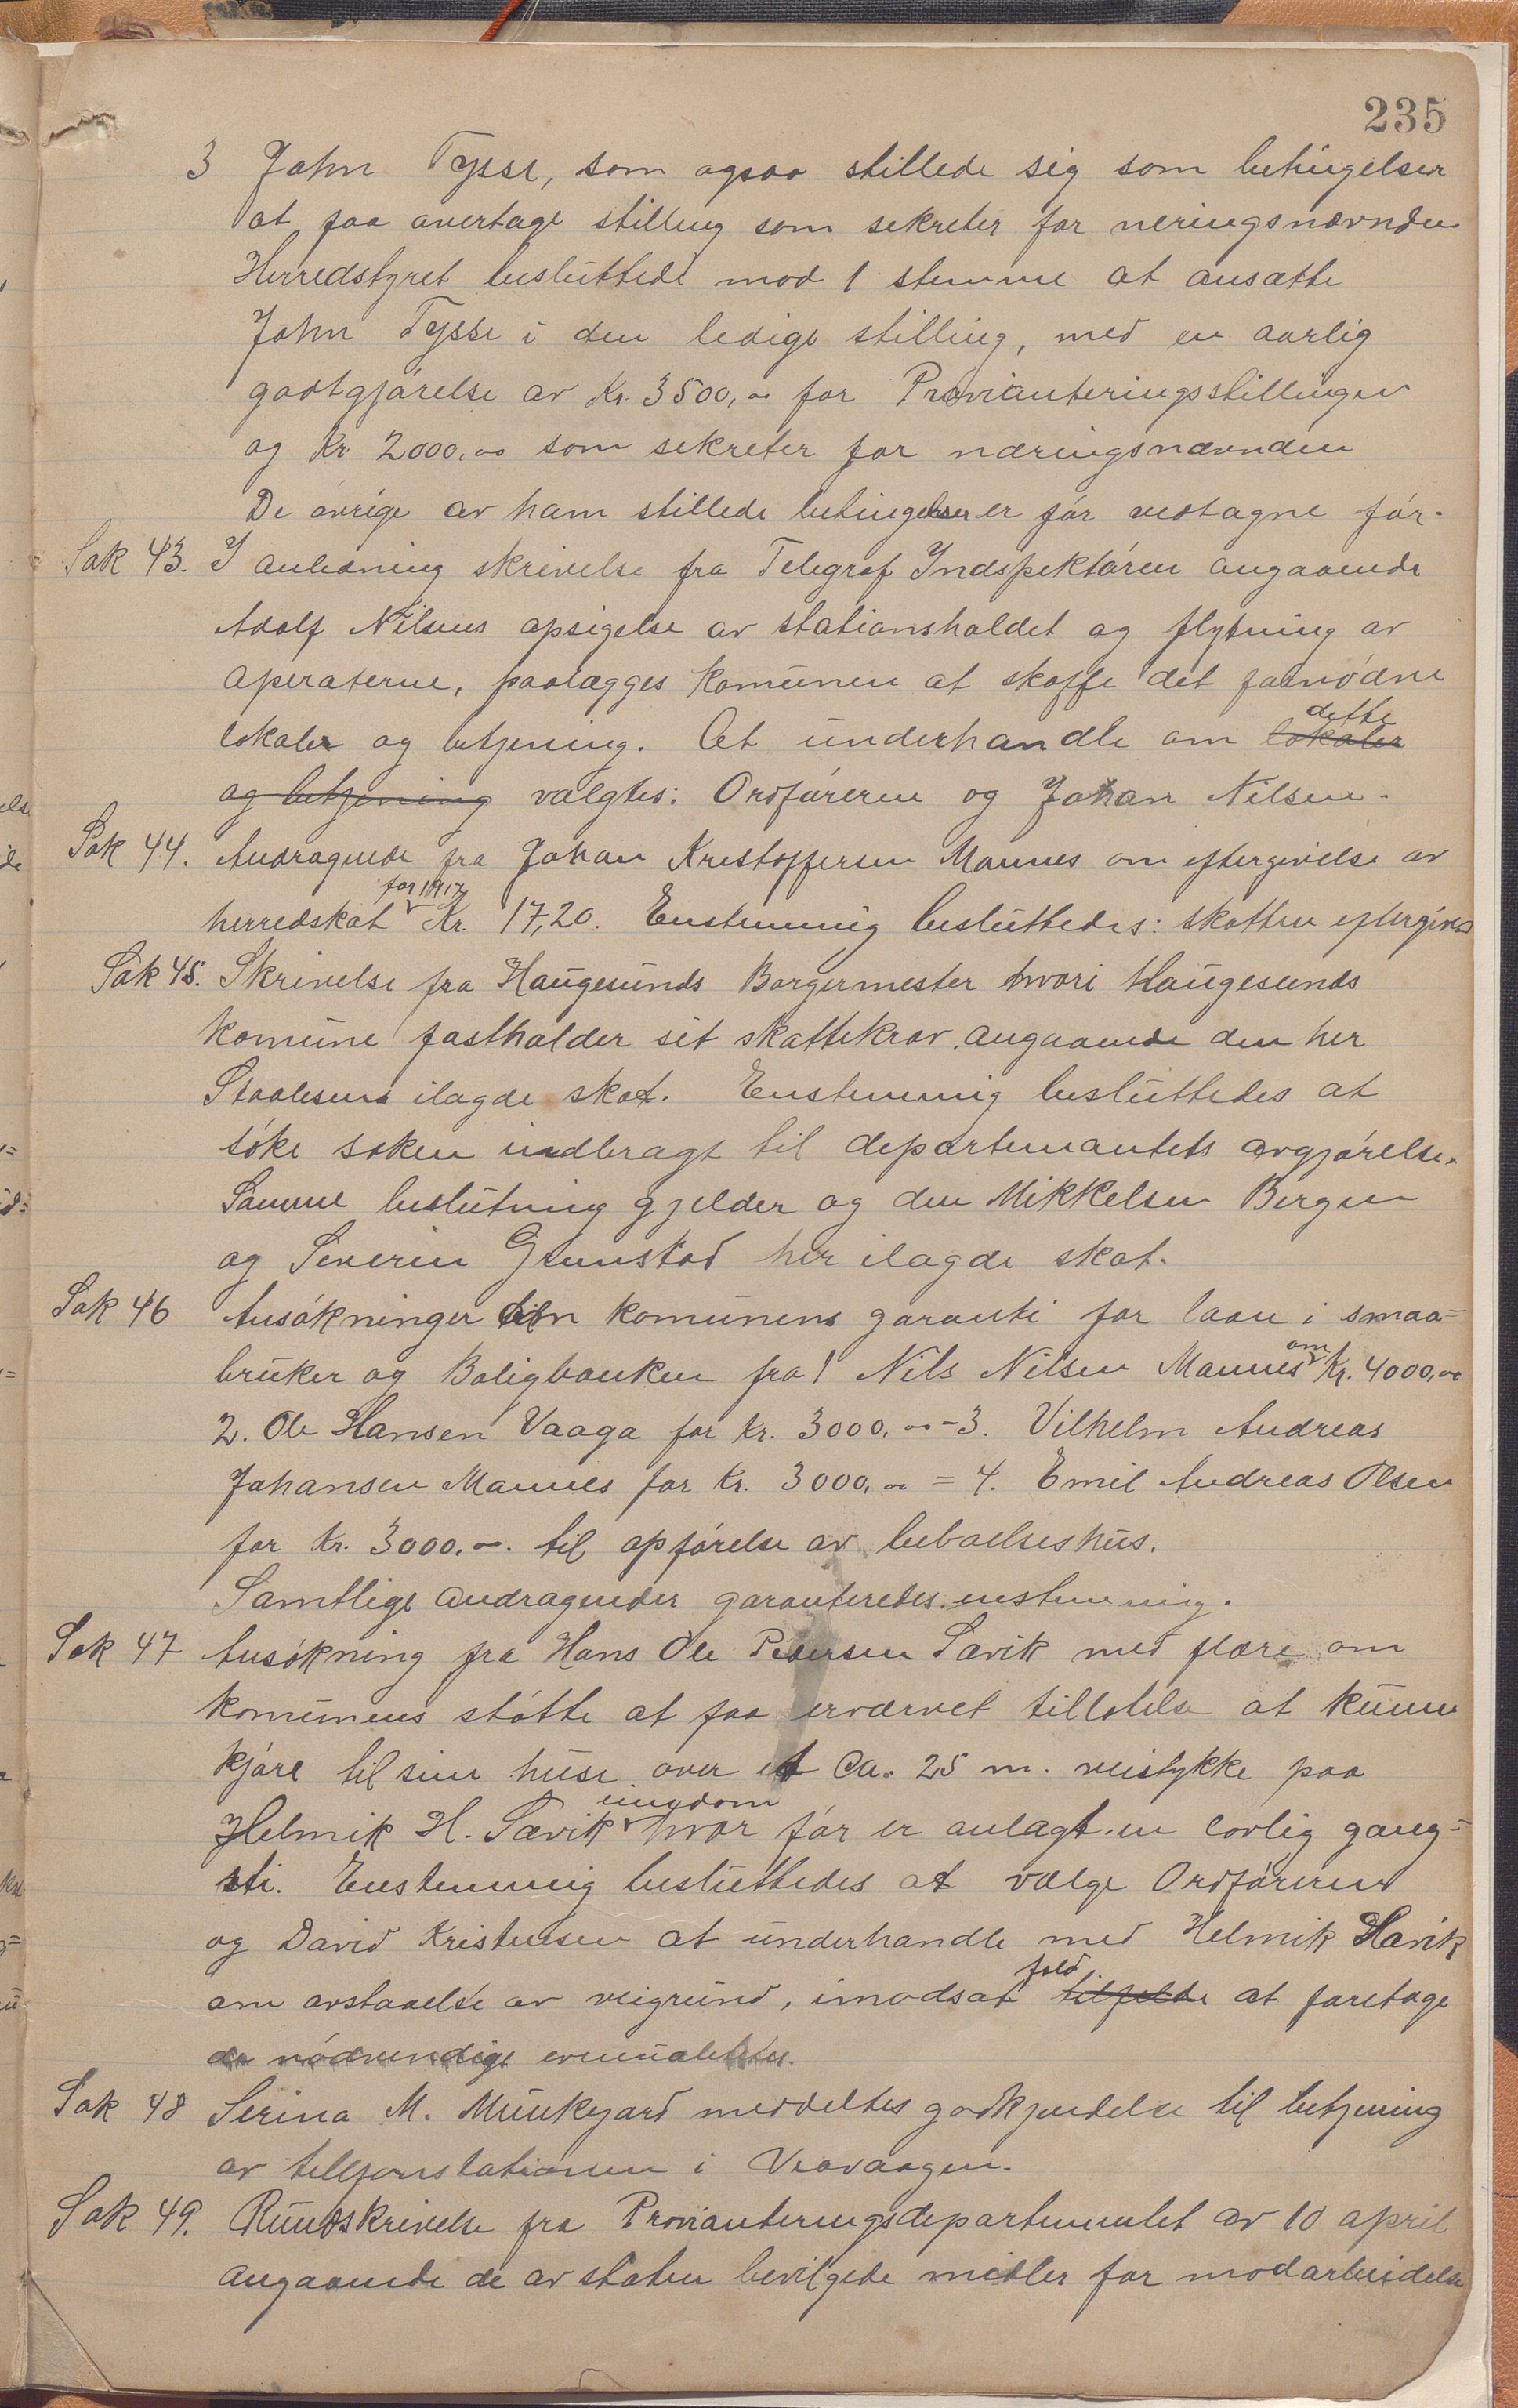 235
3 John Tysse, som ogsaa stillede sig som betingelser
at faa overtage stilling som sekreter for neringsnævnden
Herredstyret besluttede mod 1 stemme at ansætte
John Tysse i den ledige stilling, med en aarlig
godtgjørelse av Kr. 3500,00 for Provianteringsstillingen
og Kr. 2000,00 som sekreter for næringsnævnden
De øvrige av ham stillede betingelser er før vedtagne før.
Sak 43. I anledning skrivelse fra Telegraf Indspektøren angaaende
Adolf Nilsens opsigelse av stationsholdet og flytning av
aperaterne, paalægges komunen at skaffe det fornødne
lokaler og betjening. At underhandle om lokaler dette
og betjening valgtes: Ordføreren og Johan Nilsen.
Sak 44. Andragende fra Johan Kristoffersen Mannes om eftergivelse av
herredskat for 1917 Kr. 17,20. Enstemmig besluttedes: skatten eftergives
Sak 45. Skrivelse fra Haugesunds Borgermester hvori Haugesunds
komune fastholder sit skattekrav angaaende den her
Staalesens ilagde skat. Enstemmig besluttedes at
søke saken indbragt til departemantets avgjørelse.
Samme beslutning gjelder og den Mikkelsen Bergen
og Severin Grunstad her ilagde skat.
Sak 46 Ansøkninger om komunens garanti for laan i smaa=
bruker og Boligbanken fra 1 Nils Nilsen Mannes om Kr. 4000,00
2. Ole Hansen Vaaga for Kr. 3000,00 - 3. Vilhelm Andreas
Johansen Mannes for Kr. 3000,00 = 4. Emil Andreas Olsen
for Kr. 3000.00. til opførelse av beboelseshus.
Samtlige andragender garanteredes enstemmig.
Sak 47 Ansøkning fra Hans Ole Pedersen Sævik med flære om
komunens støtte at faa erværvet tillatelse at kunne
kjøre til sine huse over et Ca. 25 m. veistykke paa
Helmik H. Sævik eiendom hvor før er anlagt en lovlig gang=
sti. Enstemmig besluttedes at vælge Ordføreren
og David Kristensen at underhandle med Helmik Hævik
om avstaaelse av veigrund, imodsat fald tilfelde at foretage
de nødvendige
Sak 48 Serina M. Munkejord meddeltes godkjendelse til betjening
av tellefonstationen i Veavaagen.
Sak 49. Rundskrivelse fra Provianteringsdepartementet av 10 april
angaaende de av staten bevilgede midler for modarbeidelse